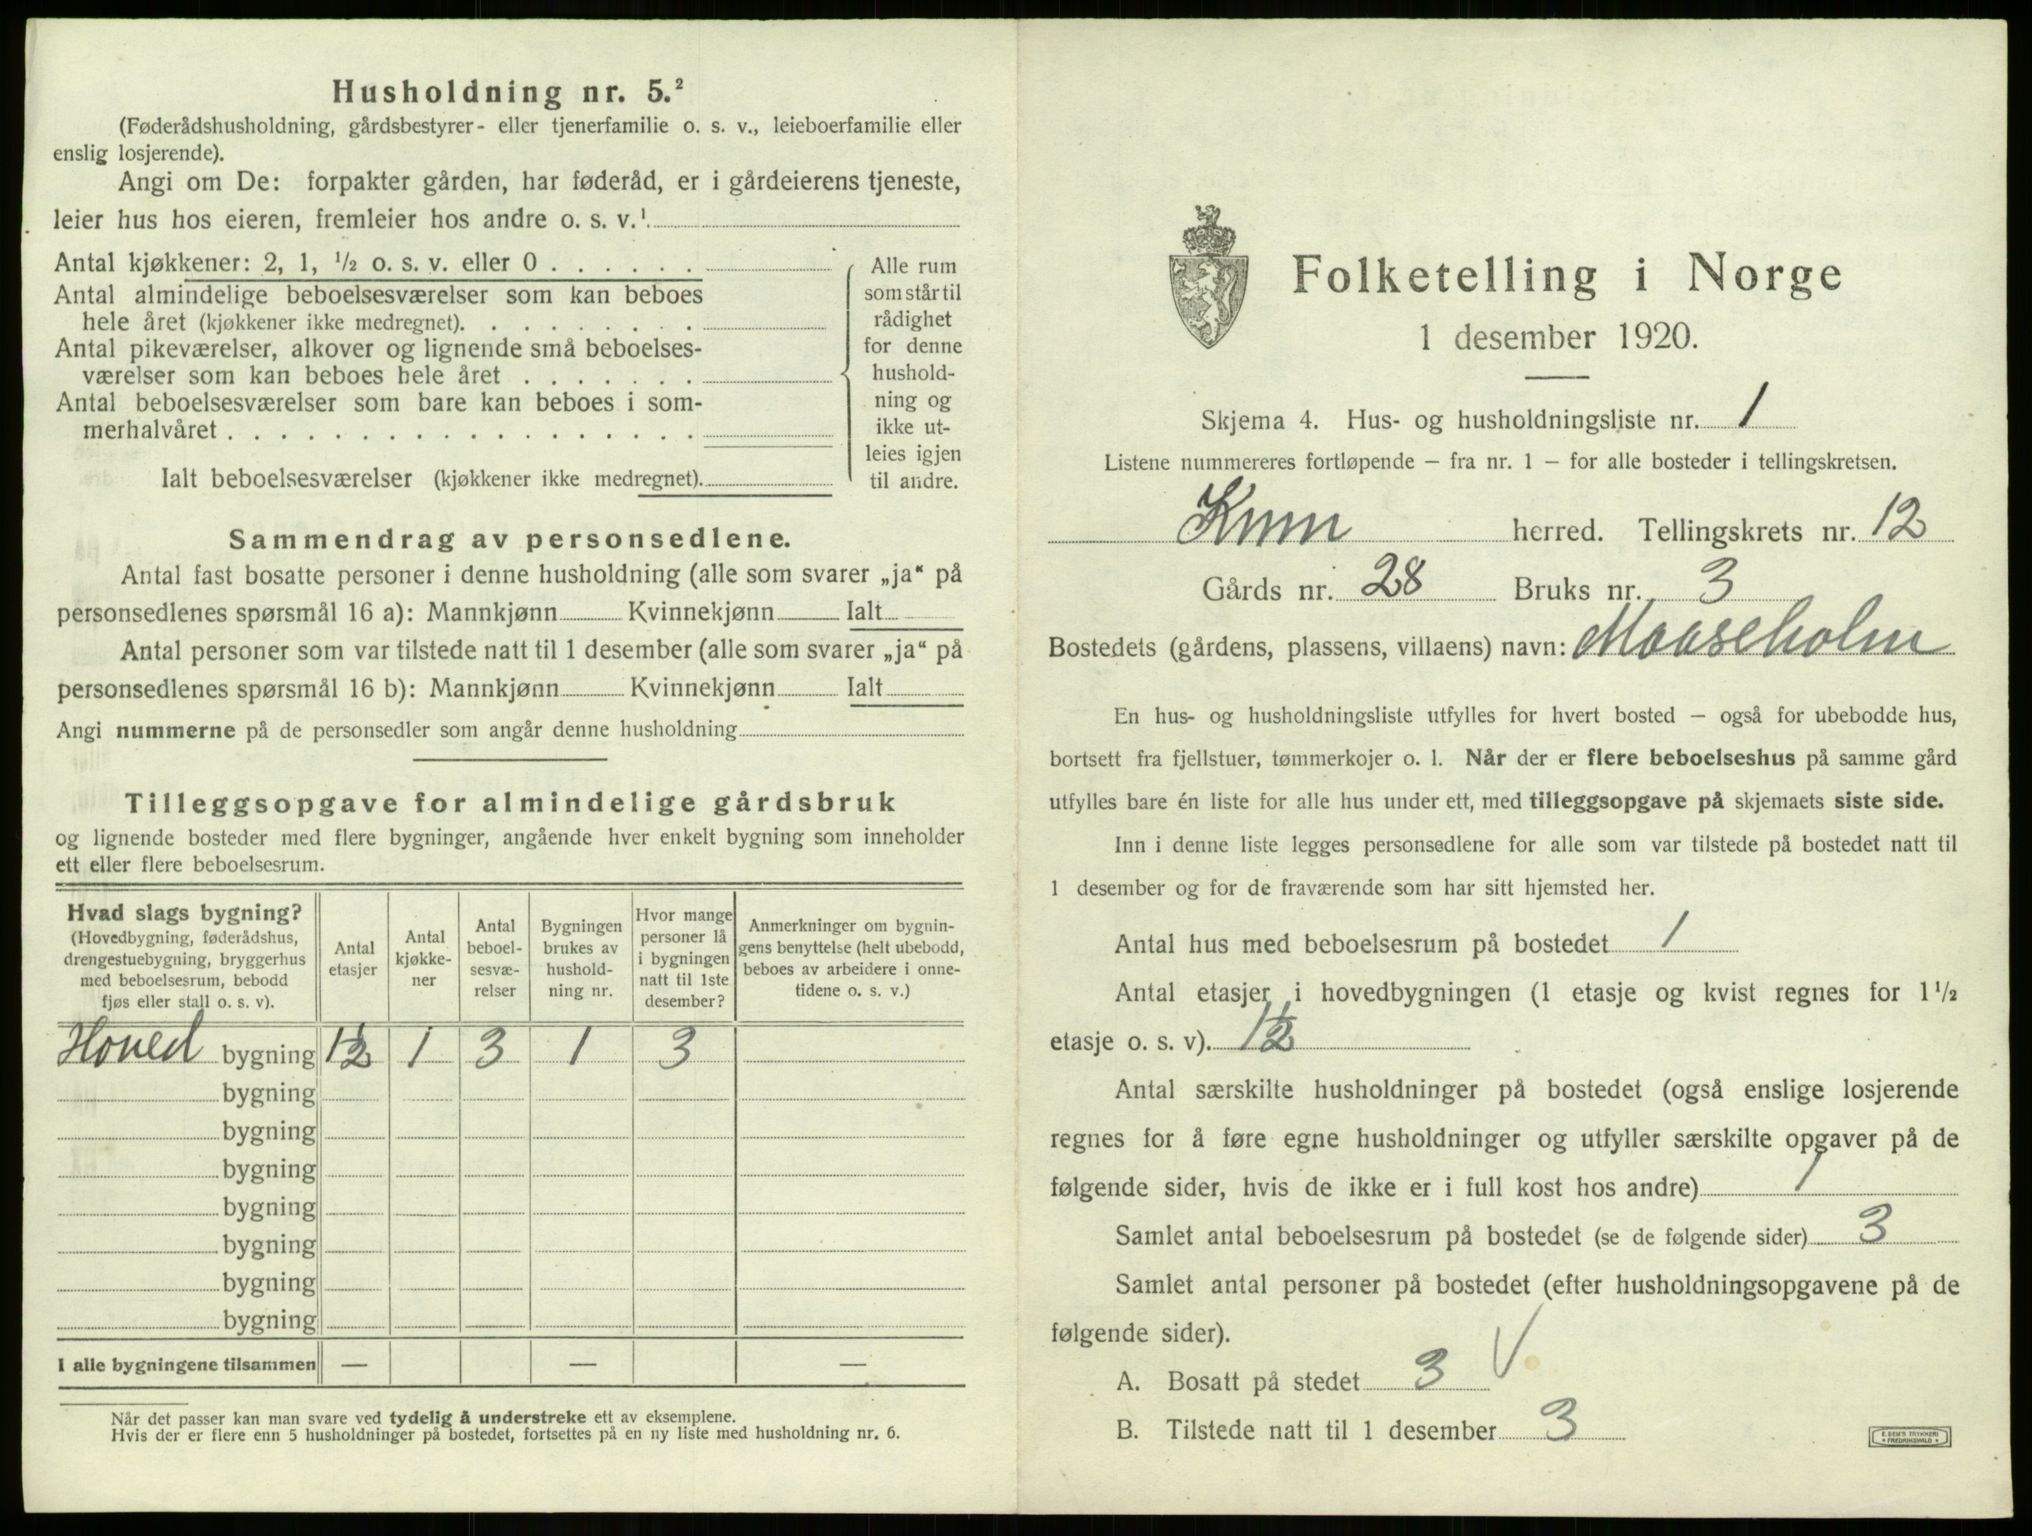 Husholdning nr. 5.²
(Føderådshusholdning, gårdsbestyrer- eller tjenerfamilie o. s. v., leieboerfamilie eller
enslig losjerende).
Angi om De: forpakter gården, har føderåd, er i gårdeierens tjeneste,
leier hus hos eieren, fremleier hos andre o. s. v.¹
Antal kjøkkener: 2, 1, ½ o. s. v. eller 0 . . . . . .
Antal almindelige beboelsesværelser som kan beboes
hele året (kjøkkener ikke medregnet). . . . . . . . .
Antal pikeværelser, alkover og lignende små beboelses-
værelser som kan beboes hele året . . . . . . .
Antal beboelsesværelser som bare kan beboes i som-
merhalvåret . . . . . . . . . . . . . . . . . .
Ialt beboelsesværelser (kjøkkener ikke medregnet).
Alle rum
som står til
rådighet
for denne
hushold-
ning og
ikke ut-
leies igjen
til andre.
Sammendrag av personsedlene.
Antal fast bosatte personer i denne husholdning (alle som svarer „ja“ på
personsedlenes spørsmål 16 a): Mannkjønn Kvinnekjønn Ialt
Antal personer som var tilstede natt til 1 desember (alle som svarer „ja“ på
personsedlenes spørsmål 16 b): Mannkjønn Kvinnekjønn Ialt
Angi nummerne på de personsedler som angår denne husholdning
Tilleggsopgave for almindelige gårdsbruk
og lignende bosteder med flere bygninger, angående hver enkelt bygning som inneholder
ett eller flere beboelsesrum.
Hvad slags bygning?
(Hovedbygning, føderådshus,
drengestuebygning, bryggerhus
med beboelsesrum, bebodd
fjøs eller stall o. s. v).
Antal
etasjer
Antal
kjøkke-
ner
Antal
beboel-
sesvæ-
relser
Bygningen
brukes av
hushold-
ning nr.
Hvor mange
personer lå
i bygningen
natt til 1ste
desember?
Anmerkninger om bygnin-
gens benyttelse (helt ubebodd,
beboes av arbeidere i onne-
tidene o. s. v.)
Hoved bygning 1½ 1 3 1 3
bygning
bygning
bygning
bygning
bygning
bygning
bygning
I alle bygningene tilsammen — — —
Når det passer kan man svare ved tydelig å understreke ett av eksemplene.
Hvis der er flere enn 5 husholdninger på bostedet, fortsettes på en ny liste med husholdning nr. 6.
Folketelling i Norge
1 desember 1920.
Skjema 4. Hus- og husholdningsliste nr. 1
Listene nummereres fortløpende – fra nr. 1 – for alle bosteder i tellingskretsen.
Kinn herred. Tellingskrets nr. 12
Gårds nr. 28 Bruks nr. 3
Bostedets (gårdens, plassens, villaens) navn: Maaseholm
En hus- og husholdningsliste utfylles for hvert bosted – også for ubebodde hus,
bortsett fra fjellstuer, tømmerkojer o. l. Når der er flere beboelseshus på samme gård
utfylles bare én liste for alle hus under ett, med tilleggsopgave på skjemaets siste side.
Inn i denne liste legges personsedlene for alle som var tilstede på bostedet natt til
1 desember og for de fraværende som har sitt hjemsted her.
Antal hus med beboelsesrum på bostedet 1
Antal etasjer i hovedbygningen (1 etasje og kvist regnes for 1½
etasje o. s. v). 1½
Antal særskilte husholdninger på bostedet (også enslige losjerende
regnes for å føre egne husholdninger og utfyller særskilte opgaver på de
følgende sider, hvis de ikke er i full kost hos andre) 1
Samlet antal beboelsesrum på bostedet (se de følgende sider) 3
Samlet antal personer på bostedet (efter husholdningsopgavene på de
følgende sider).
A. Bosatt på stedet 3 V
B. Tilstede natt til 1 desember 3
E. SEM'S TRYKKERI
FREDRIKSHALD